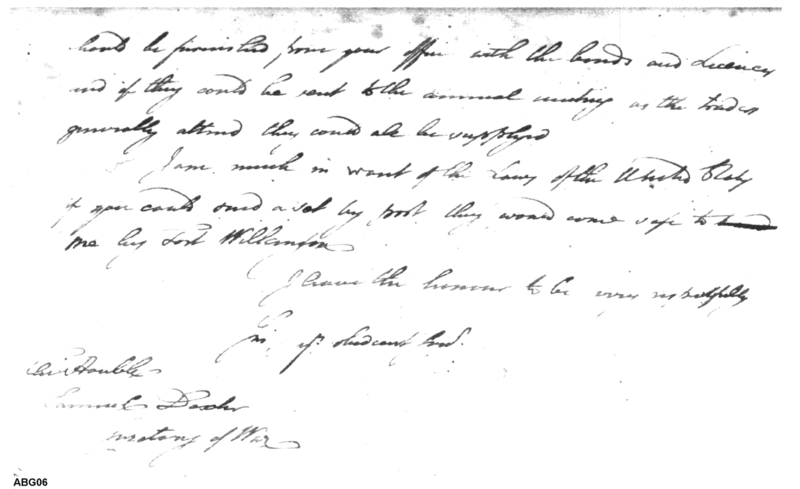 be furnished from your office with the bonds and Licences
and if they could be sent to the annual meeting as the traders
generally attend they could all be supplyed
I am much in want of the Laws of the United States
if you could send a set by post they would come safe to
me by Fort Wilkinson
I have the honour to be very respectfully
yr. obedient Servt.
Honble
Samuel Dexter
Secretary of War
ABG06